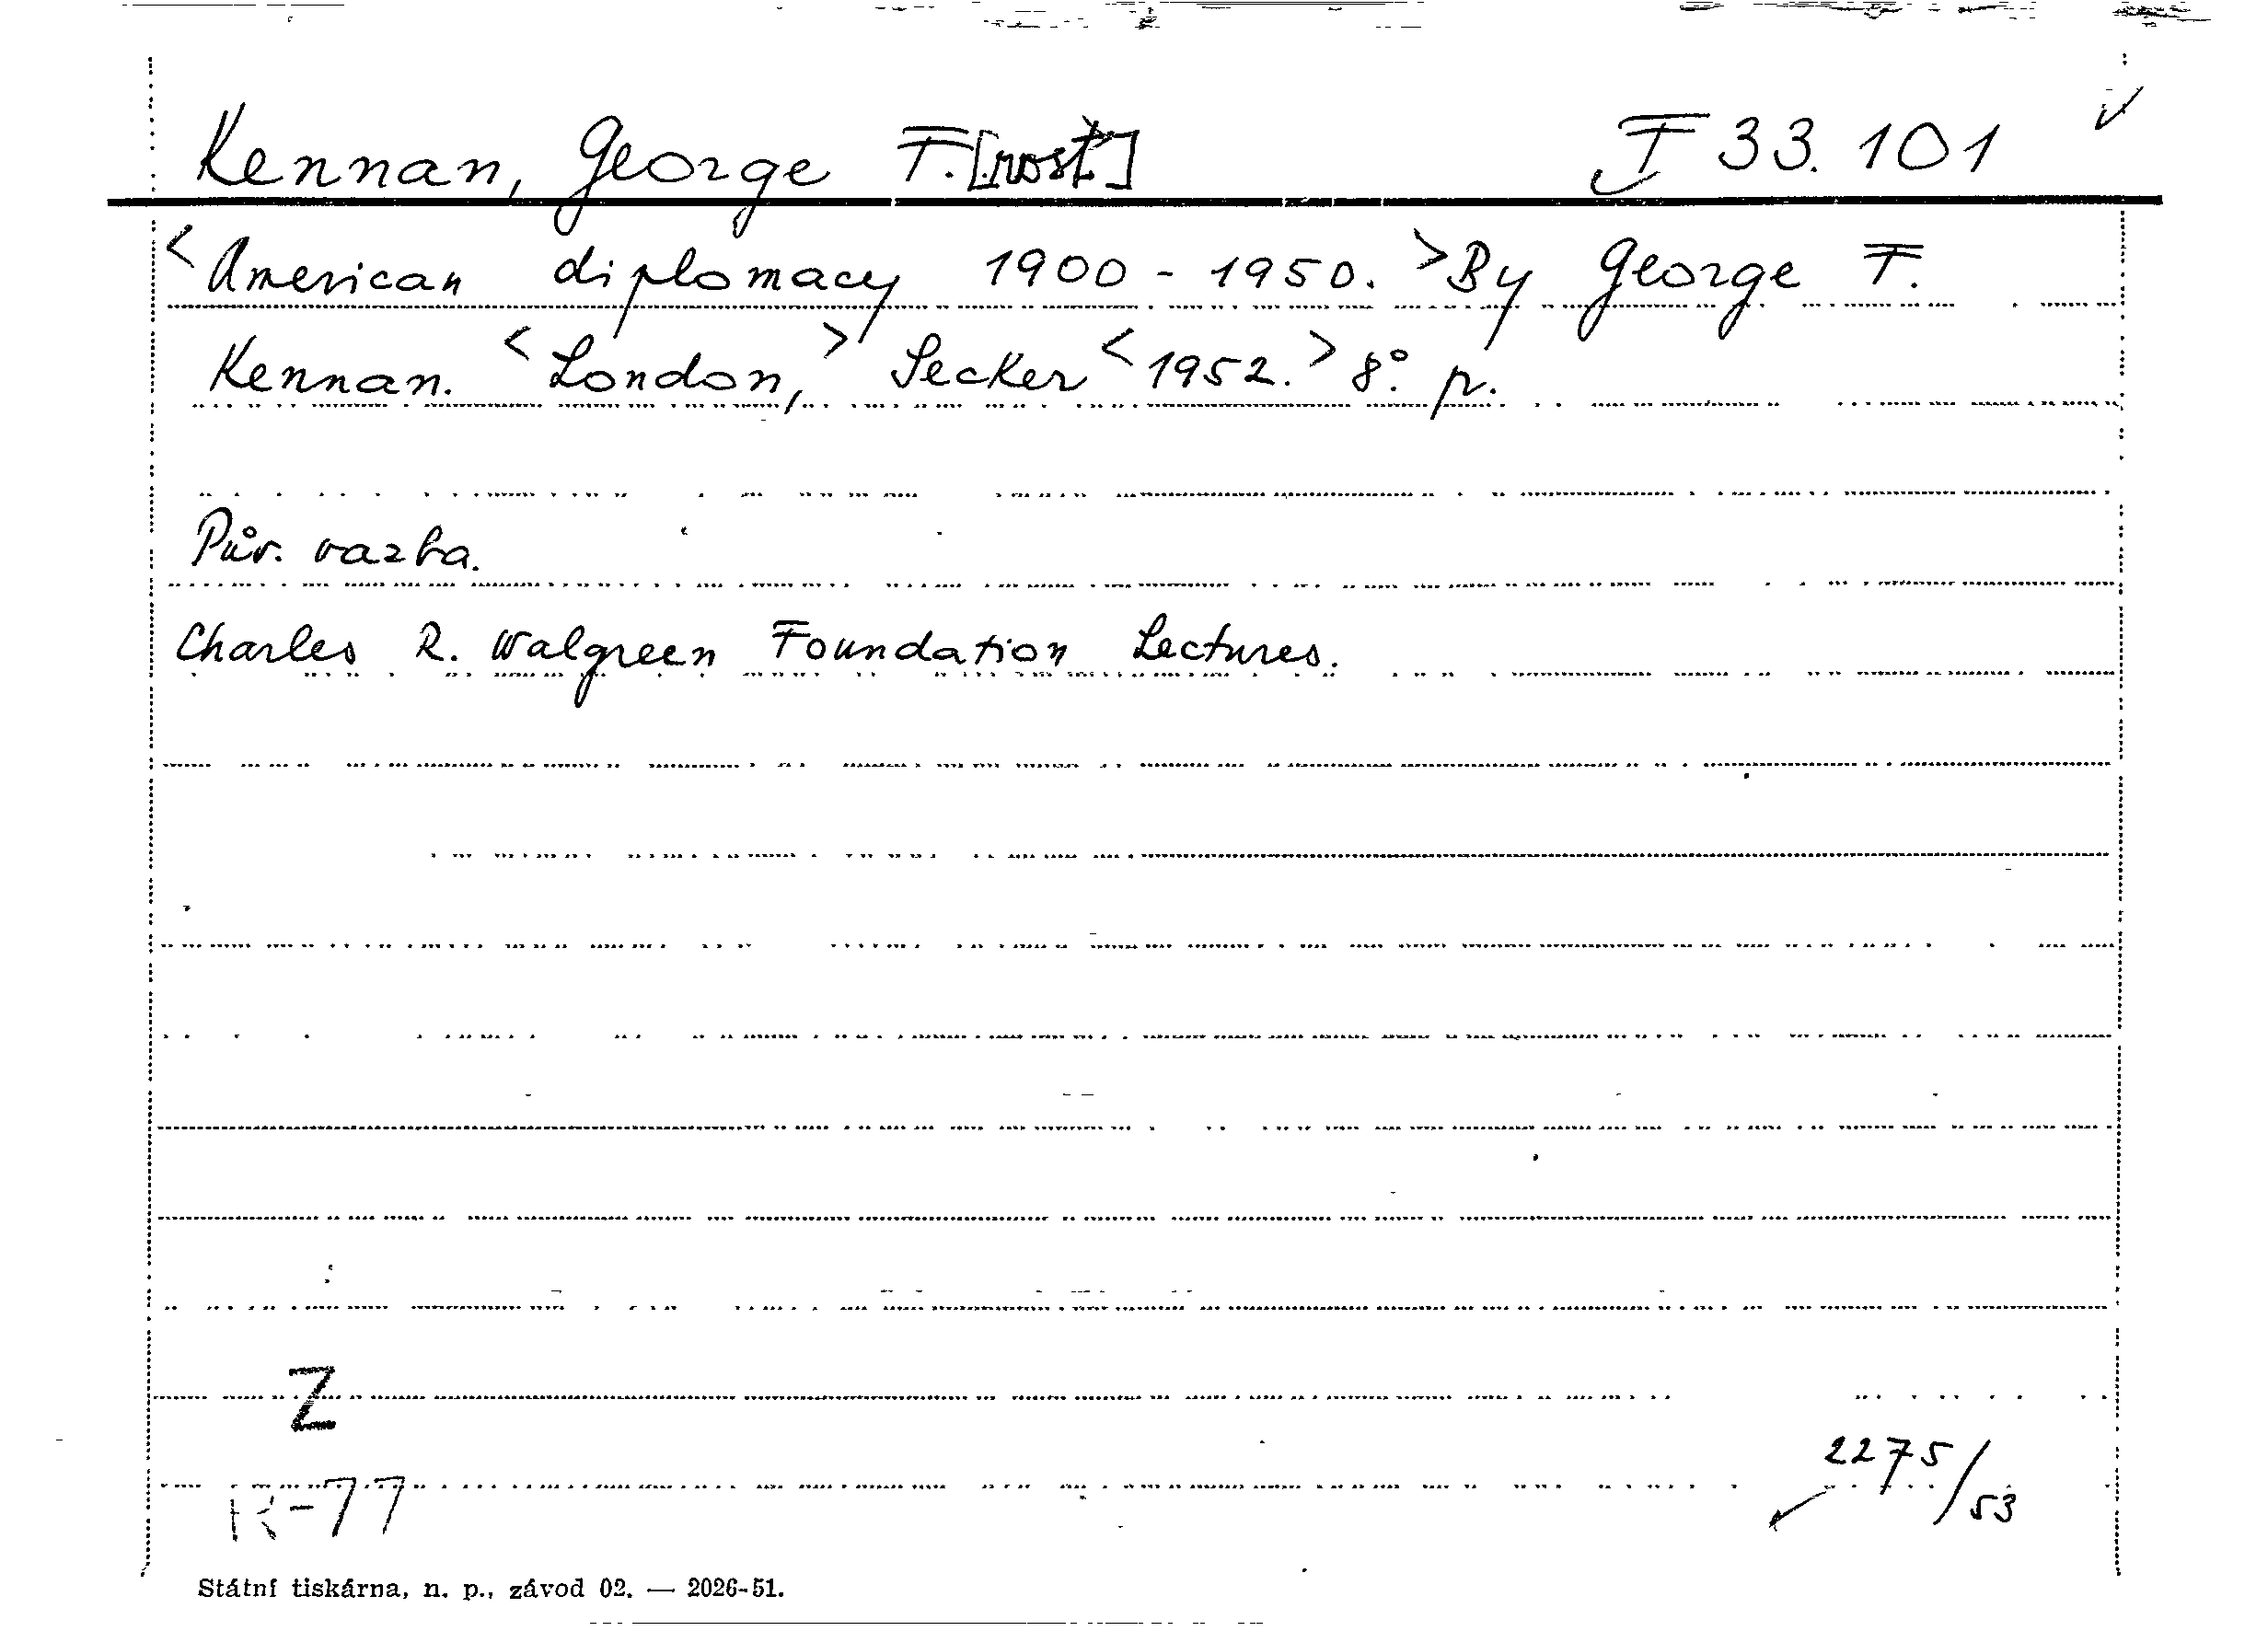 Kennan, George F.[rost] F 33.101
<American diplomacy 1900-1950.> By George F.
Kennan. <London,> Secker <1952.> 8°. p.
Pův. vazba.
Charles R. Walgreen Foundation Lectures.
Z
2275/53
R-77
Státní tiskárna, n. p., závod 02. — 2026-51.